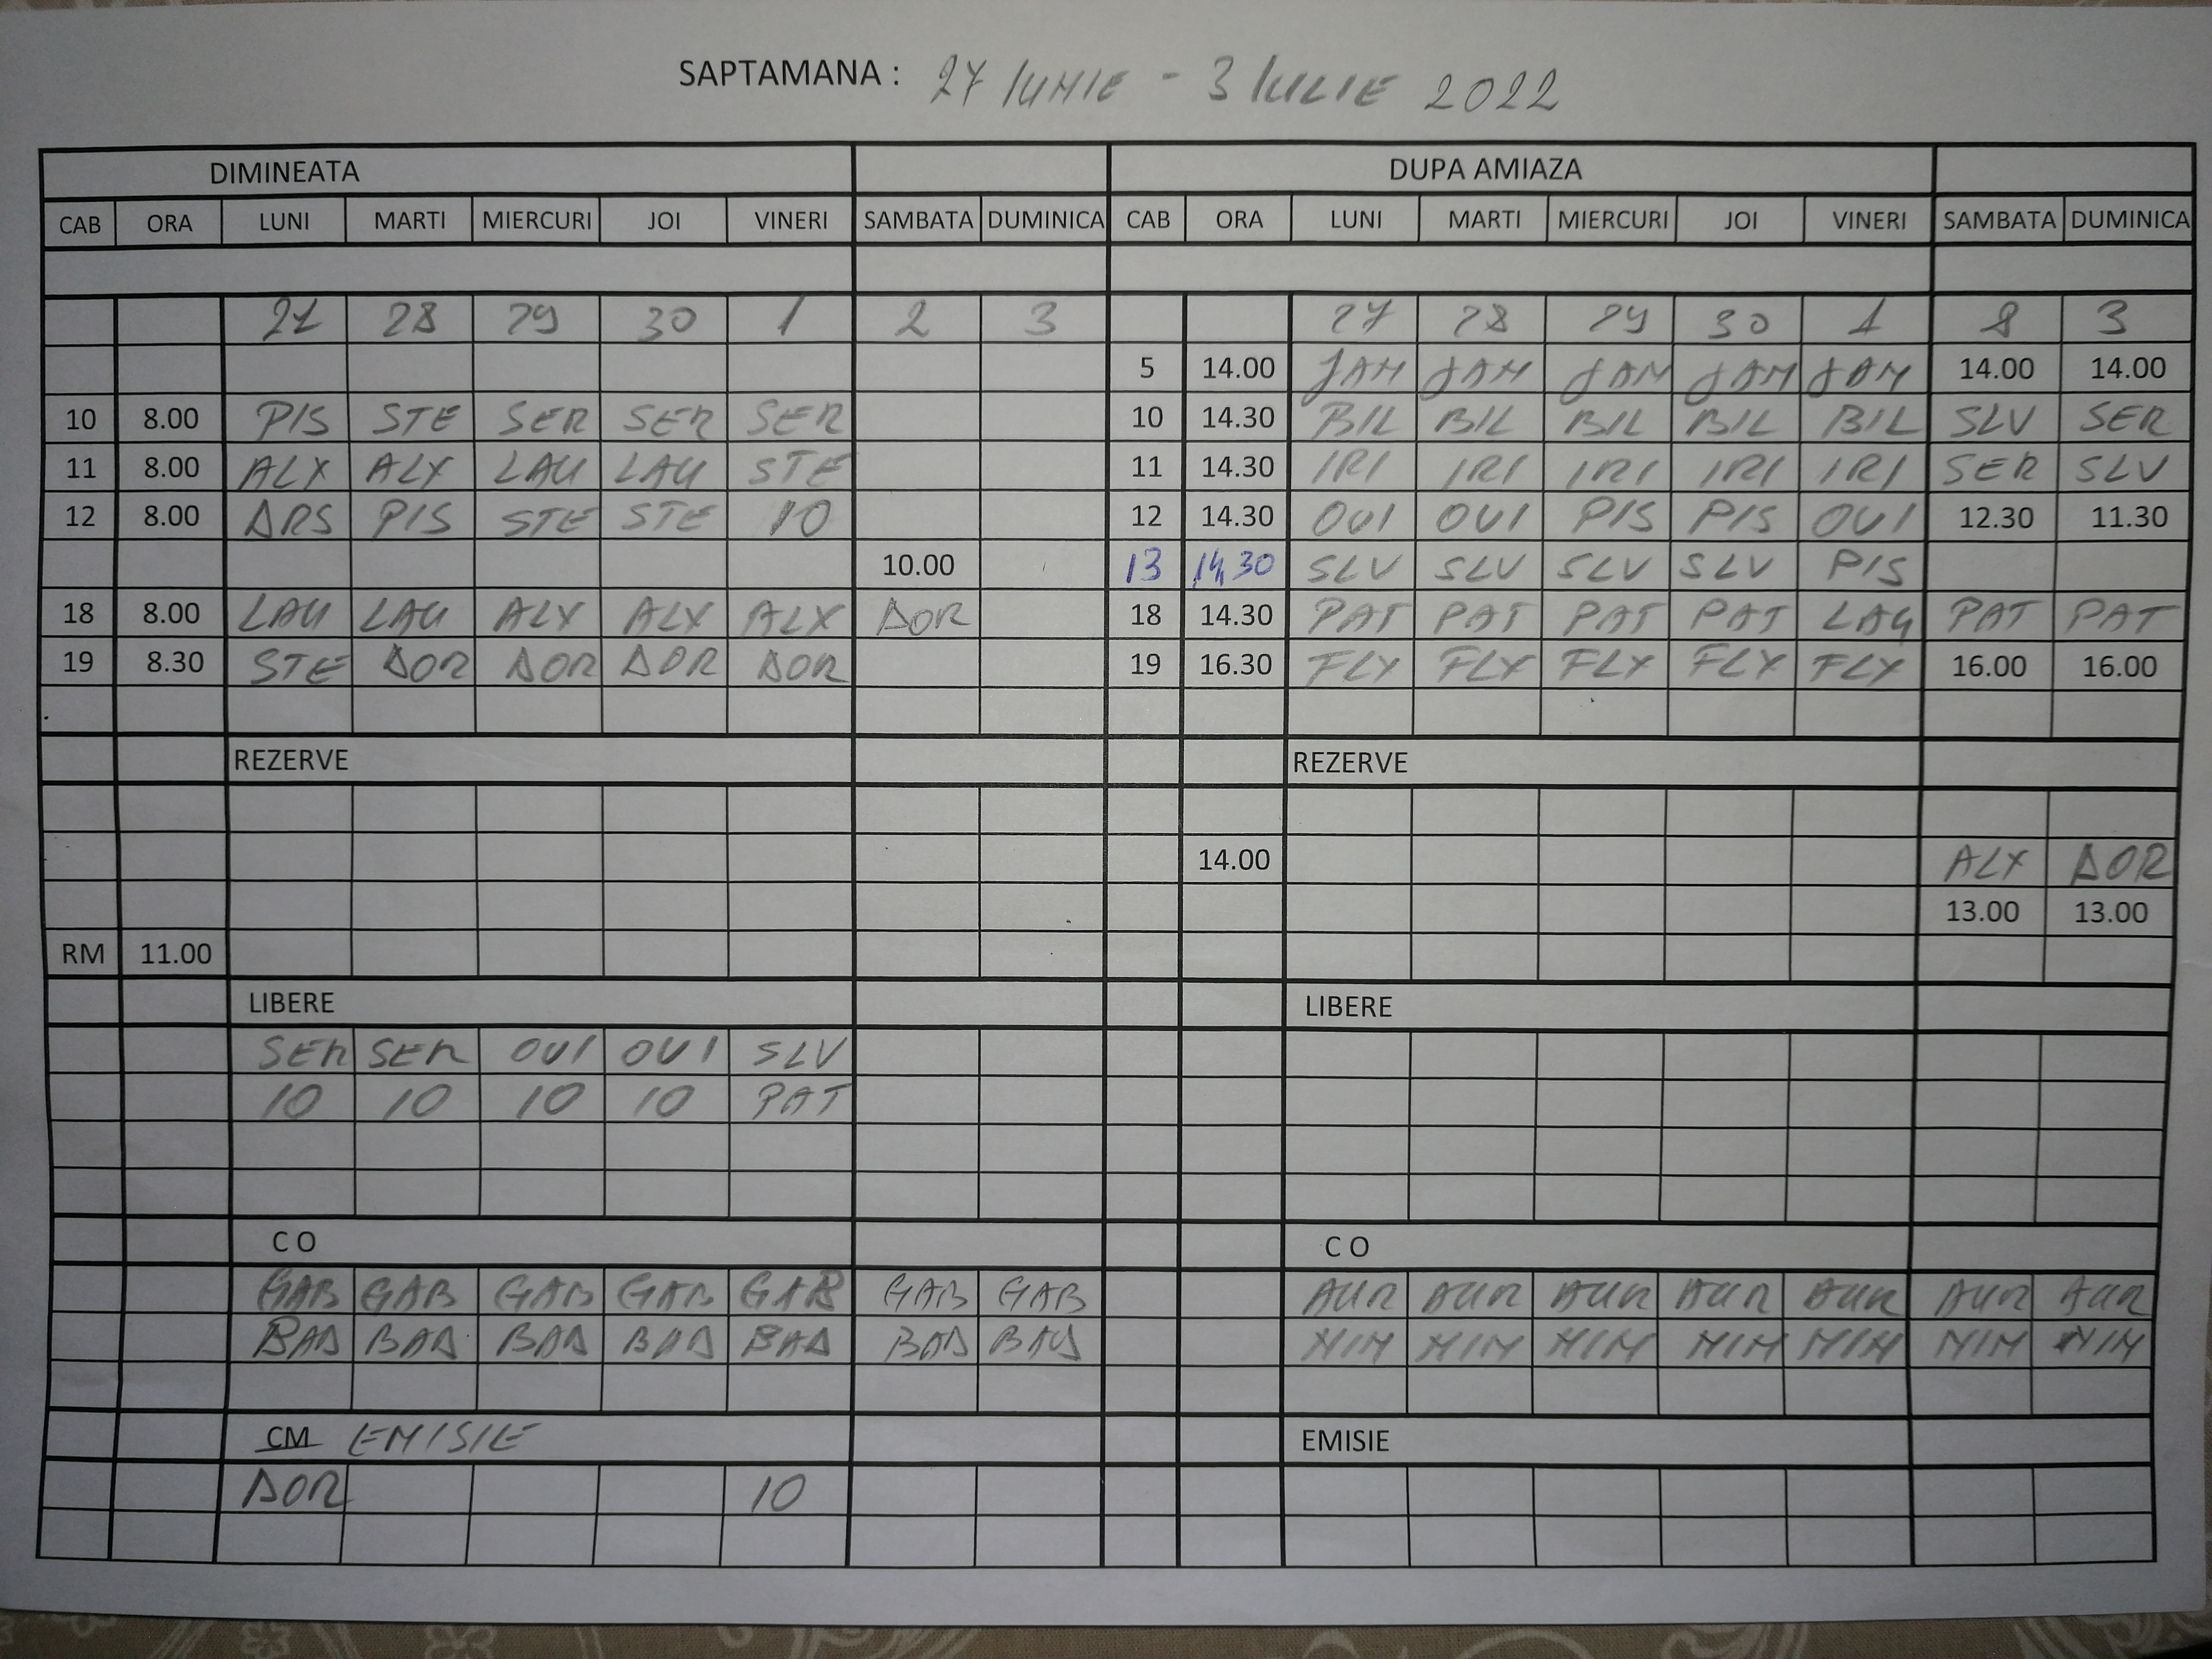 SAPTAMANA : 27 IUNIE - 3 IULIE 2022
DIMINEATA DUPA AMIAZA
CAB ORA LUNI MARTI MIERCURI JOI VINERI SAMBATA DUMINICA CAB ORA LUNI MARTI MIERCURI JOI VINERI SAMBATA DUMINICA
27 28 29 30 1 2 3 27 28 29 30 1 2 3
5 14.00 JAM JAM JAM JAM JAM 14.00 14.00
10 8.00 PIS STE SER SER SER 10 14.30 BIL BIL BIL BIL BIL SLV SER
11 8.00 ALX ALX LAU LAU STE 11 14.30 IRI IRI IRI IRI IRI SER SLV
12 8.00 DRS PIS STE STE 10 12 14.30 OVI OVI PIS PIS OVI 12.30 11.30
10.00 13 14,30 SLV SLV SLV SLV PIS
18 8.00 LAU LAU ALX ALX ALX DOR 18 14.30 PAT PAT PAT PAT LAU PAT PAT
19 8.30 STE DOR DOR DOR DOR 19 16.30 FLX FLX FLX FLX FLX 16.00 16.00
REZERVE REZERVE
14.00 ALX DOR
13.00 13.00
RM 11.00
LIBERE LIBERE
SER SER OVI OVI SLV
10 10 10 10 PAT
C O C O
GAB GAB GAB GAB GAB GAB GAB AUR AUR AUR AUR AUR AUR AUR
BAD BAD BAD BAD BAD BAD BAD MIM MIM MIM MIM MIM MIM MIM
CM EMISIE EMISIE
DOR 10